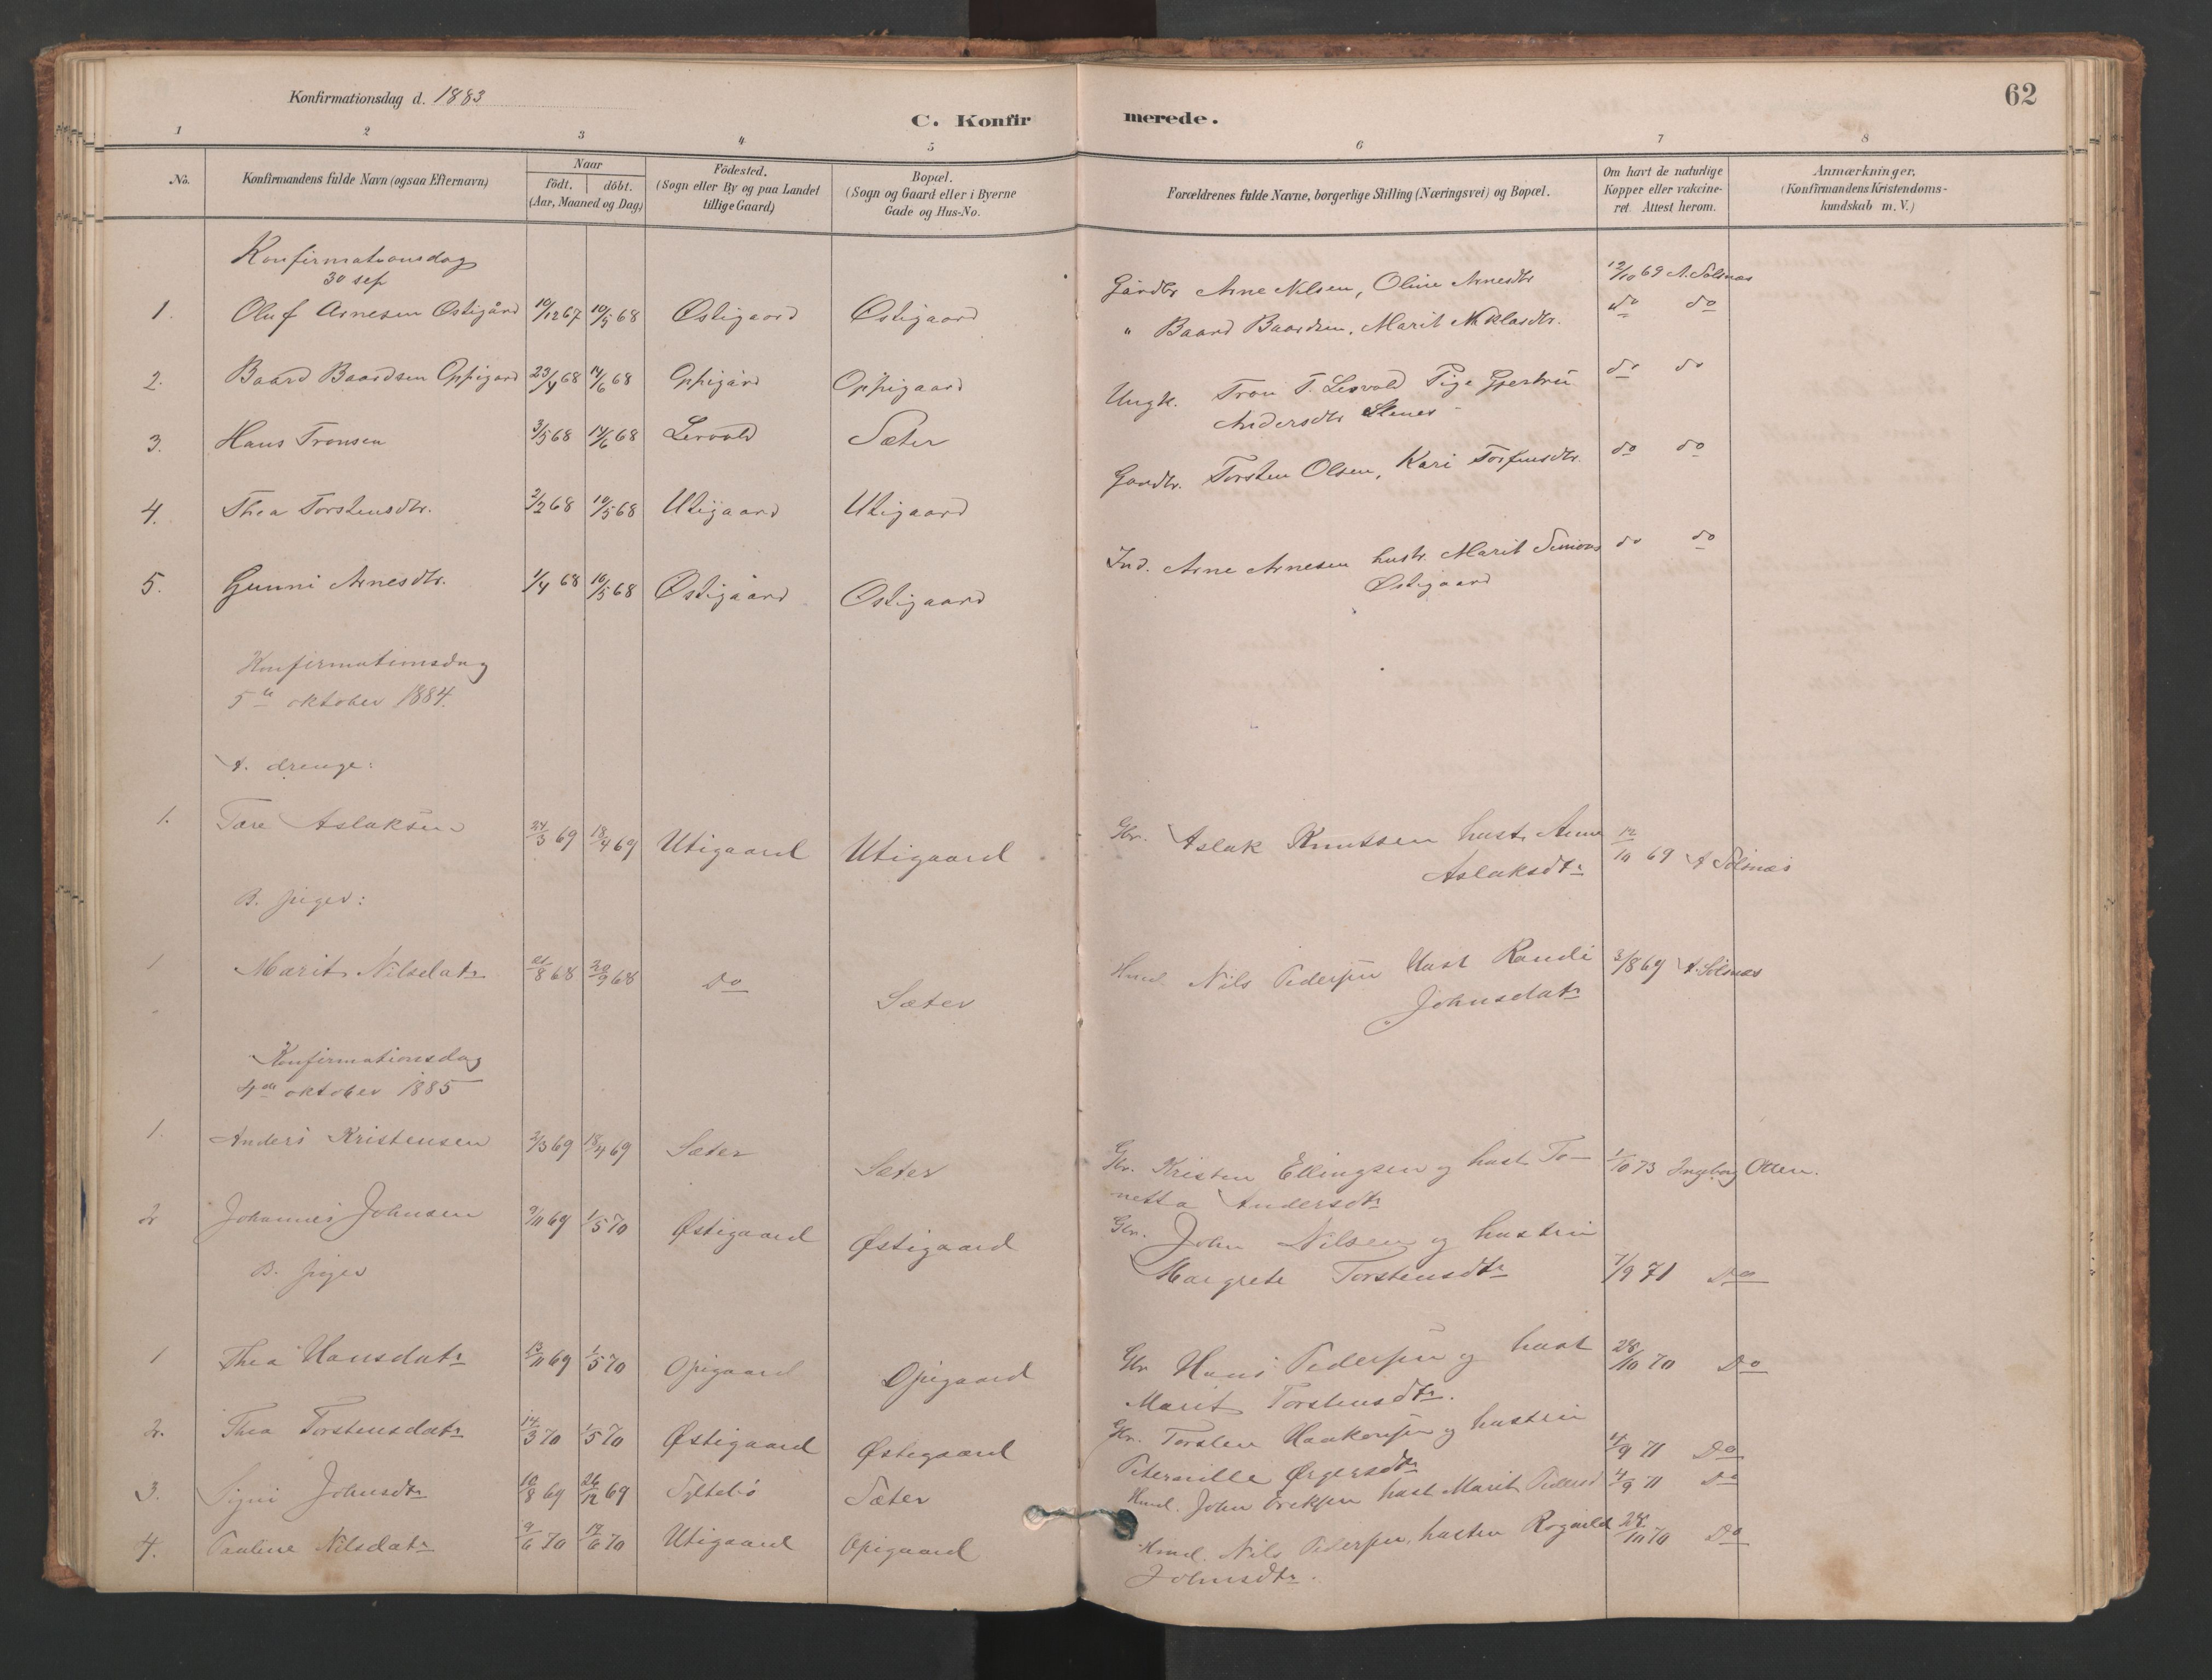 Konfirmationsdag d. 1883
62
C. Konfirmerede.
1 2 3 4 5 6 7 8
No.
Konfirmandens fulde Navn (ogsaa Efternavn)
Naar
födt. döbt.
(Aar, Maaned og Dag)
Födested.
(Sogn eller By og paa Landet
tillige Gaard)
Bopæl.
(Sogn og Gaard eller i Byerne
Gade og Hus-No.
Forældrenes fulde Navne, borgerlige Stilling (Næringsvei) og Bopæl.
Om havt de naturlige
Kopper eller vakcine-
ret. Attest herom.
Anmærkninger,
(Konfirmandens Kristendoms-
kundskab m. V.)
Konfirmationsdag
30 sep
1. Oluf Arnesen Østigård 10/12 67 10/5 68 Østigaard Østigaard Gårdbr Arne Nilsen, Oline Arnesdtr 12/10 69 A. Solsnæs
2. Baard Baardsen Oppigard 23/4 68 14/6 68 Oppigård Oppigaard " Baard Baardsen, Marit Niklasdtr. do do
3. Hans Tronsen 3/5 68 14/6 68 Lervold Sæter Ungk. Tron T. Lervold Pige Gjertru do do
Andersdtr Stenes
4. Thea Torstensdtr. 2/2 68 10/5 68 Utigaard Utigaard Gardbr. Torsten Olsen, Kari Torfinsdtr. do do
5. Gunni Arnesdtr. 1/4 68 10/5 68 Østigaard Østigaard Ind. Arne Arnesen hustr. Marit Simons do do
Østigaard
Konfirmationsdag
5te oktober 1884.
A. drenge:
1. Tore Aslaksen 24/3 69 18/4 69 Utigaard Utigaard Gbr. Aslak Knutsen hust. Anne 12/10 69 A Solsnæs
Aslaksdtr
B. piger:
1 Marit Nilsdatr 21/8 68 20/9 68 Do Sæter Husmd. Nils Pedersen Hust Randi 3/8 69 A. Solsnæs
Johnsdatr
Konfirmationsdag
4de oktober 1885
1. Anders Kristensen 2/3 69 18/4 69 Sæter Sæter Gbr. Kristen Ellingsen og hust. To- 1/10 73 Ingeborg Otten.
netta Andersdtr
2 Johannes Johnsen 9/11 69 1/5 70 Østigaard Østigaard Gbr. John Nilsen og hustru
Margrete Torstensdtr 7/9 71 Do
B. piger
1 Thea Hansdatr 13/11 69 1/5 70 Opigaard Opigaard Gbr Hans Pedersen og hust 28/10 70 Do
Marit Torstensdtr.
2. Thea Torstensdatr 14/3 70 1/5 70 Østigaard Østigaard Gbr. Torsten Haakonsen og hustru
Peternille Ørgersdtr 4/9 71 Do
3. Signi Johnsdtr 10/8 69 26/12 69 Syltebö Sæter Husmd. John Eriksen hust Marit Pedersd 4/9 71 Do
4. Pauline Nilsdatr 9/6 70 19/6 70 Utigaard Opigaard Husmd. Nils Pedersen, hustru Rognild 28/10 70 Do
Johnsdtr.